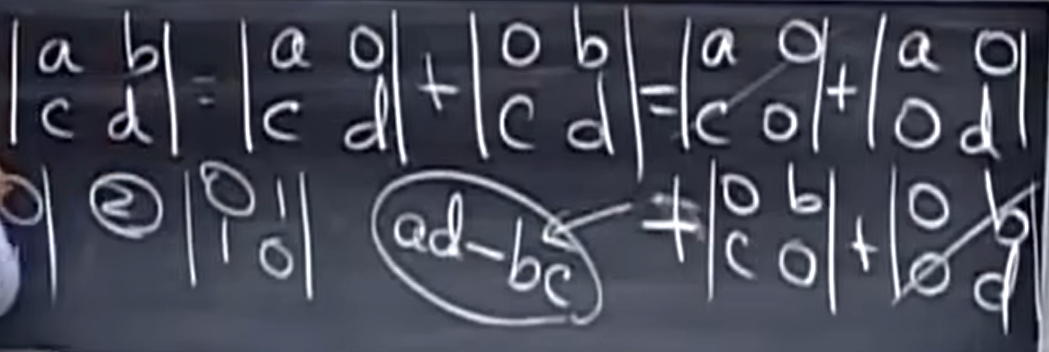 |a b; c d| = |a 0; c d| + |0 b; c d| = |a 0; c 0| + |a 0; 0 d|
0| ② |0 1; 1 0| ad-bc + |0 b; c 0| + |0 b; 0 d|